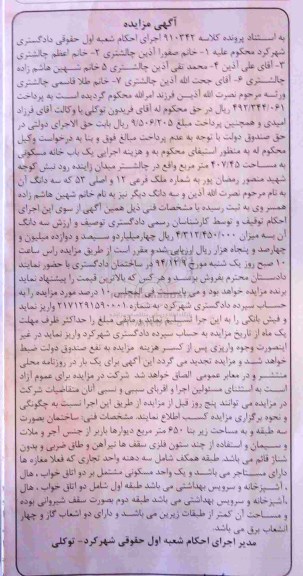 آگهی مزایده
به استناد پرونده کلاسه ۹۱۰۳۴۲ اجرای احکام شعبه اول حقوقی دادگستری
شهرکرد محکوم علیه ۱- خانم صفورا آذین چالشتری ۲- خانم اعظم چالشتری
۳- آقای علی آذین ۴- محمد تقی آذین چالشتری ۵ خانم شهین هاشم زاده
چالشتری ۶- آقای حجت الله آذین چالشتری ۷- خانم طلا قاسمی چالشتری
ورثه مرحوم نصرت الله آذین فرزند امرالله محکوم گردیده است به پرداخت
۴۹۲/۳۴۴۰۶۱ ریال در حق محکوم له آقای فریدون توکلی با وکالت آقای فرزاد
امیدی و همچنین پرداخت مبلغ ۹/۵۰۶/۲۰۵ ریال بابت حق الاجرای دولتی در
حق صندوق دولت با توجه به عدم پرداخت مبالغ فوق و بنا به درخواست وکیل
محکوم له به منظور استیفای محکوم به و هزینه اجرایی یک باب خانه مسکونی
به مساحت ۴۰۷/۴۵ متر مربع واقع در چالشتر میدان زاینده رود نبش کوچه
شهید منصور رمضان پور به شماره ملک فرعی ۱۲ و اصلی ۵۳ که سه دانگ آن
به نام مرحوم نصرت الله آذین و سه دانگ دیگر نیز به نام خانم شهین هاشم زاده
همسر وی به ثبت رسیده با مشخصات فنی ذیل همین آگهی از سوی این اجرای
احکام توقیف و توسط کارشناسان رسمی دادگستری توصیف و ارزش سه دانگ
آن به میزان ۴/۳۱۲/۴۵۰/۰۰۰ ریال چهارمیلیارد و سیصد و دوازده میلیون و
چهارصد و پنجاه هزار ریال ارزیابی شد و مقرر است از طریق مزایده راس ساعت
۱۰ صبح روز یک شنبه مورخ ۹۴/۱۲/۹ در ساختمان دادگستری با حضور نماینده
دادستان محترم بفروش برسد و هر کس که بالاترین قیمت را پیشنهاد نماید
برنده مزایده خواهد بود و می بایست فی المجلس ۱۰ درصد مورد مزایده را به
حساب سپرده دادگستری شهرکرد به شماره ۲۱۷۱۲۹۱۵۹۰۰۰۱ واریز نماید
و فیش بانکی را به این اجرا تسلیم نماید و مابقی مبلغ را حداکثر ظرف مهلت
یک ماه از تاریخ مزایده به حساب سپرده دادگستری شهرکرد واریز نماید در غیر
اینصورت وجوه واریزی پس از کسر هزینه مزایده به نفع صندوق دولت ضبط
خواهد شد و مزایده تجدید می گردد این آگهی برای یک بار در روزنامه محلی
منتشر و در معابر عمومی الصاق خواهد شد. شرکت در مزایده برای عموم آزاد
است به استثنای مسئولین اجرا و اقربای سببی و نسبی آنان متقاضیان شرکت
در مزایده می توانند پنج روز قبل از مزایده از طریق این اجرا نسبت به چگونگی
و نحوه برگزاری مزایده کسب اطلاع نمایند. مشخصات فنی: ساختمان بصورت
سه طبقه و به مساحت زیر بنا ۶۵۰ متر مربع دیوارها باربر از جنس آجر و ملات
و سیمان و استفاده از چند ستون فلزی سقف ها تیرآهن و طاق ضربی و بدون
شناژ قائم می باشد. طبقه همکف شامل سه دهنه واحد تجاری که فعلا مغازه ها
دارای مستاجر می باشد و یک واحد مسکونی مشتمل بر دو اتاق خواب، هال
، آشپزخانه و سرویس بهداشتی می باشد طبقه اول شامل دو اتاق خواب، هال
،آشپزخانه و سرویس بهداشتی می باشد طبقه دوم بصورت سقف شیروانی بوده
و مساحت آن کمتر از طبقات زیرین می باشد و دارای دو انشعاب گاز و چهار
انشعاب برق می باشد.
مدیر اجرای احکام شعبه اول حقوقی شهرکرد- توکلی